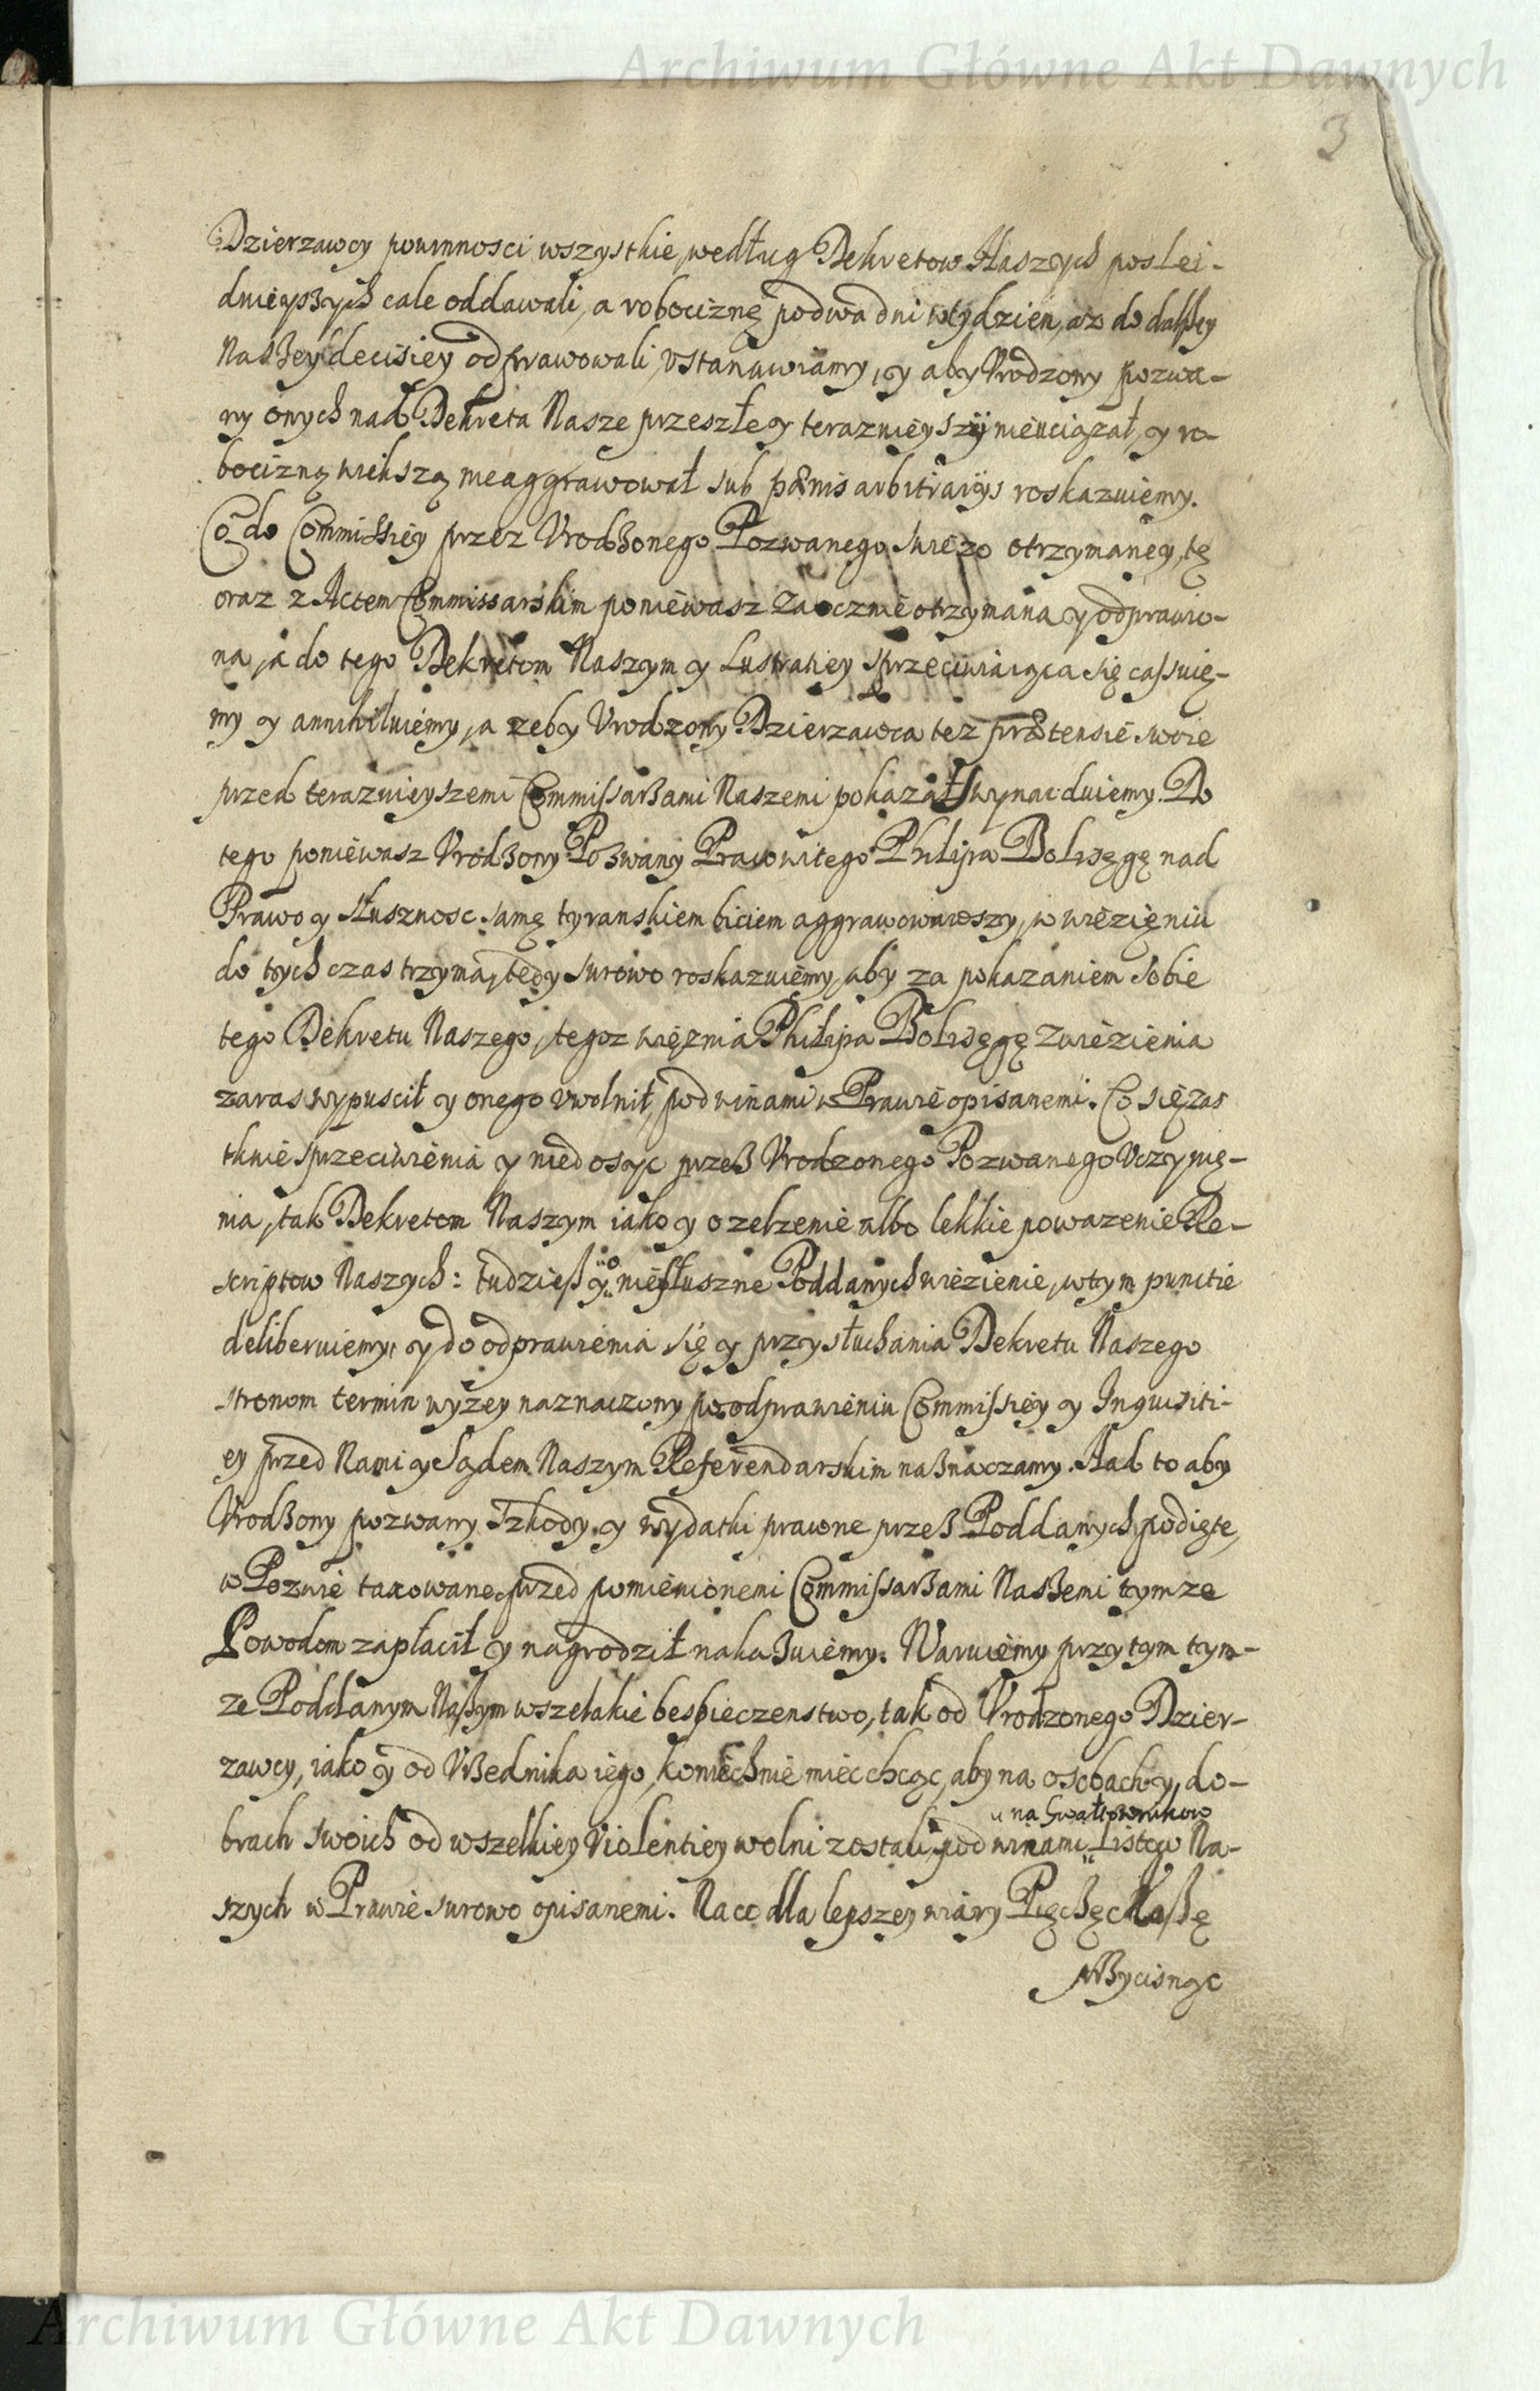 Archiwum Główne Akt Dawnych
3
Dzierzawcy powinnosci wszystkie, według Dekretow Naszych poslei-
dnieyszych cale oddawali, a robociznę podwa dni wtydzien, az do dalszey
Naszey decisiey odprawowali, vstanawiamy, y aby Vrodzony pozwa-
ny onych nad Dekreta Nasze przeszłe y teraznieyszÿ nieuciązał, y ro-
bocizną wiekszą nieaggrawował sub pænis arbitrarÿs roskazuiemy.
Co do Commissiey przez Vrodzonego Pozwanego swiezo otrzymaney, tę
oraz z Actem Commissarskim poniewasz zaocznie otrzymana y odprawio-
na, a do tego Dekretom Naszym y Lustratiey sprzeciwiaiąca się cassuię-
my y annihiluiemy, a zeby Vrodzony Dzierzawca tez prætensie swoie
przed teraznieyszemi Commissarzami Naszemi pokazał wynaiduiemy. Do
tego poniewasz Vrodzony Pozwany Pracowitego Philipa Bolisęgę nad
Prawo y słusznosc samę tyranskiem biciem aggrawowawszy, w więzięniu
do tych czas trzyma, tedy surowo roskazuiemy, aby za pokazaniem sobie
tego Dekretu Naszego, tegoz więznia Philipa Bolisęgę zwięzienia
zaras wypuscił y onego vwolnił, pod winami w Prawie opisanemi. Co się zas
tknie sprzeciwienia y niedosyc przez Vrodzonego Pozwanego Vczynię-
nia, tak Dekretom Naszym iako y ozelzenie albo lekkie powazenie Re-
scriptow Naszych: tudziesz y o niesłuszne Poddanych więzienie, wtym punctie
deliberuiemy, y do odprawienia się y przysłuchania Dekretu Naszego
stronom termin wyzey naznaczony po odprawieniu Commissiey y Inquisiti-
ey przed Nami y Sądem Naszym Referendarskim naznaczamy. Nad to aby
Vrodzony pozwany szkody y wydatki prawne przez Poddanych podięte,
w Pozwie taxowane, przed pomienionemi Commissarzami Naszemi tymze
Powodom zapłacił y nagrodził nakazuiemy. Waruiemy przytym tym-
ze Poddanym Naszym wszelakie bespieczenstwo, tak od Vrodzonego Dzier-
zawcy, iako y od Vrzednika iego, koniecznie miec chcąc, aby na osobach y do-
brach swoich od wszelkiey violentiey wolni zostali, pod winami na Gwałtownikow Listow Na-
szych w Prawie surowo opisanemi. Na co dla lepszey wiary Pięczęc Naszę
Wycisnąc
Archiwum Główne Akt Dawnych